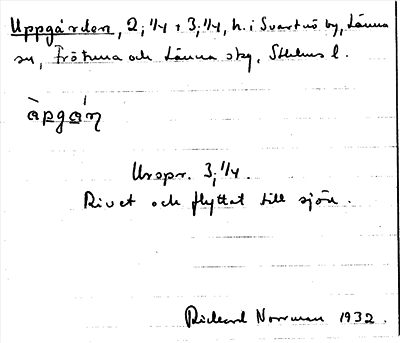 Uppgården, 2; 1/4 + 3; 1/4, h. i Svartnö by, Länna
sn, Frötuna och Länna skg, Sthlms l.
àpgán
Urspr. 3; 1/4.
Rivet och flyttat till sjön.
Rickard Norrman 1932.